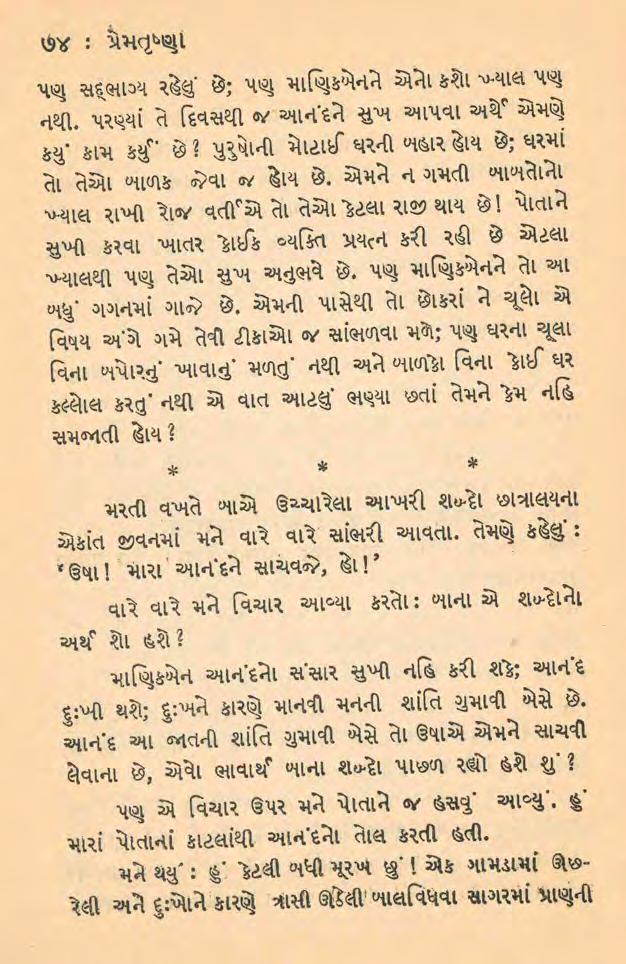 ૭૪ : પ્રેમતૃષ્ણા
પણ સદ્ભાગ્ય રહેલું છે; પણ માણિકબેનને એનો કશો ખ્યાલ પણ
નથી. પરણ્યાં તે દિવસથી જ આનંદને સુખ આપવા અર્થે એમણે
કયું કામ કર્યું છે? પુરુષોની મોટાઈ ઘરની બહાર હોય છે; ઘરમાં
તો તેઓ બાળક જેવા જ હોય છે. એમને ન ગમતી બાબતોનો
ખ્યાલ રાખી રોજ વર્તીએ તો તેઓ કેટલા રાજી થાય છે! પોતાને
સુખી કરવા ખાતર કોઈક વ્યક્તિ પ્રયત્ન કરી રહી છે એટલા
ખ્યાલથી પણ તેઓ સુખ અનુભવે છે. પણ માણિકબેનને તો આ
બધું ગગનમાં ગાજે છે. એમની પાસેથી તો છોકરાં ને ચૂલો એ
વિષય અંગે ગમે તેવી ટીકાઓ જ સાંભળવા મળે; પણ ઘરના ચૂલા
વિના બપોરનું ખાવાનું મળતું નથી અને બાળકો વિના કોઈ ઘર
કલ્લોલ કરતું નથી એ વાત આટલું ભણ્યા છતાં તેમને કેમ નહિ
સમજાતી હોય?
* * *
મરતી વખતે બાએ ઉચ્ચારેલા આખરી શબ્દો છાત્રાલયના
એકાંત જીવનમાં મને વારે વારે સાંભરી આવતા. તેમણે કહેલું :
‘ઉષા! મારા આનંદને સાચવજે, હો!’
વારે વારે મને વિચાર આવ્યા કરતો: બાના એ શબ્દોનો
અર્થ શો હશે?
માણિકબેન આનંદનો સંસાર સુખી નહિ કરી શકે; આનંદ
દુઃખી થશે; દુઃખને કારણે માનવી મનની શાંતિ ગુમાવી બેસે છે.
આનંદ આ જાતની શાંતિ ગુમાવી બેસે તો ઉષાએ એમને સાચવી
લેવાના છે, એવો ભાવાર્થ બાના શબ્દો પાછળ રહ્યો હશે શું?
પણ એ વિચાર ઉપર મને પોતાને જ હસવું આવ્યું. હું
મારાં પોતાનાં કાટલાંથી આનંદનો તોલ કરતી હતી.
મને થયું : હું કેટલી બધી મૂરખ છું! એક ગામડામાં ઊછ-
રેલી અને દુઃખોને કારણે ત્રાસી ઊઠેલી બાલવિધવા સાગરમાં પ્રાણની